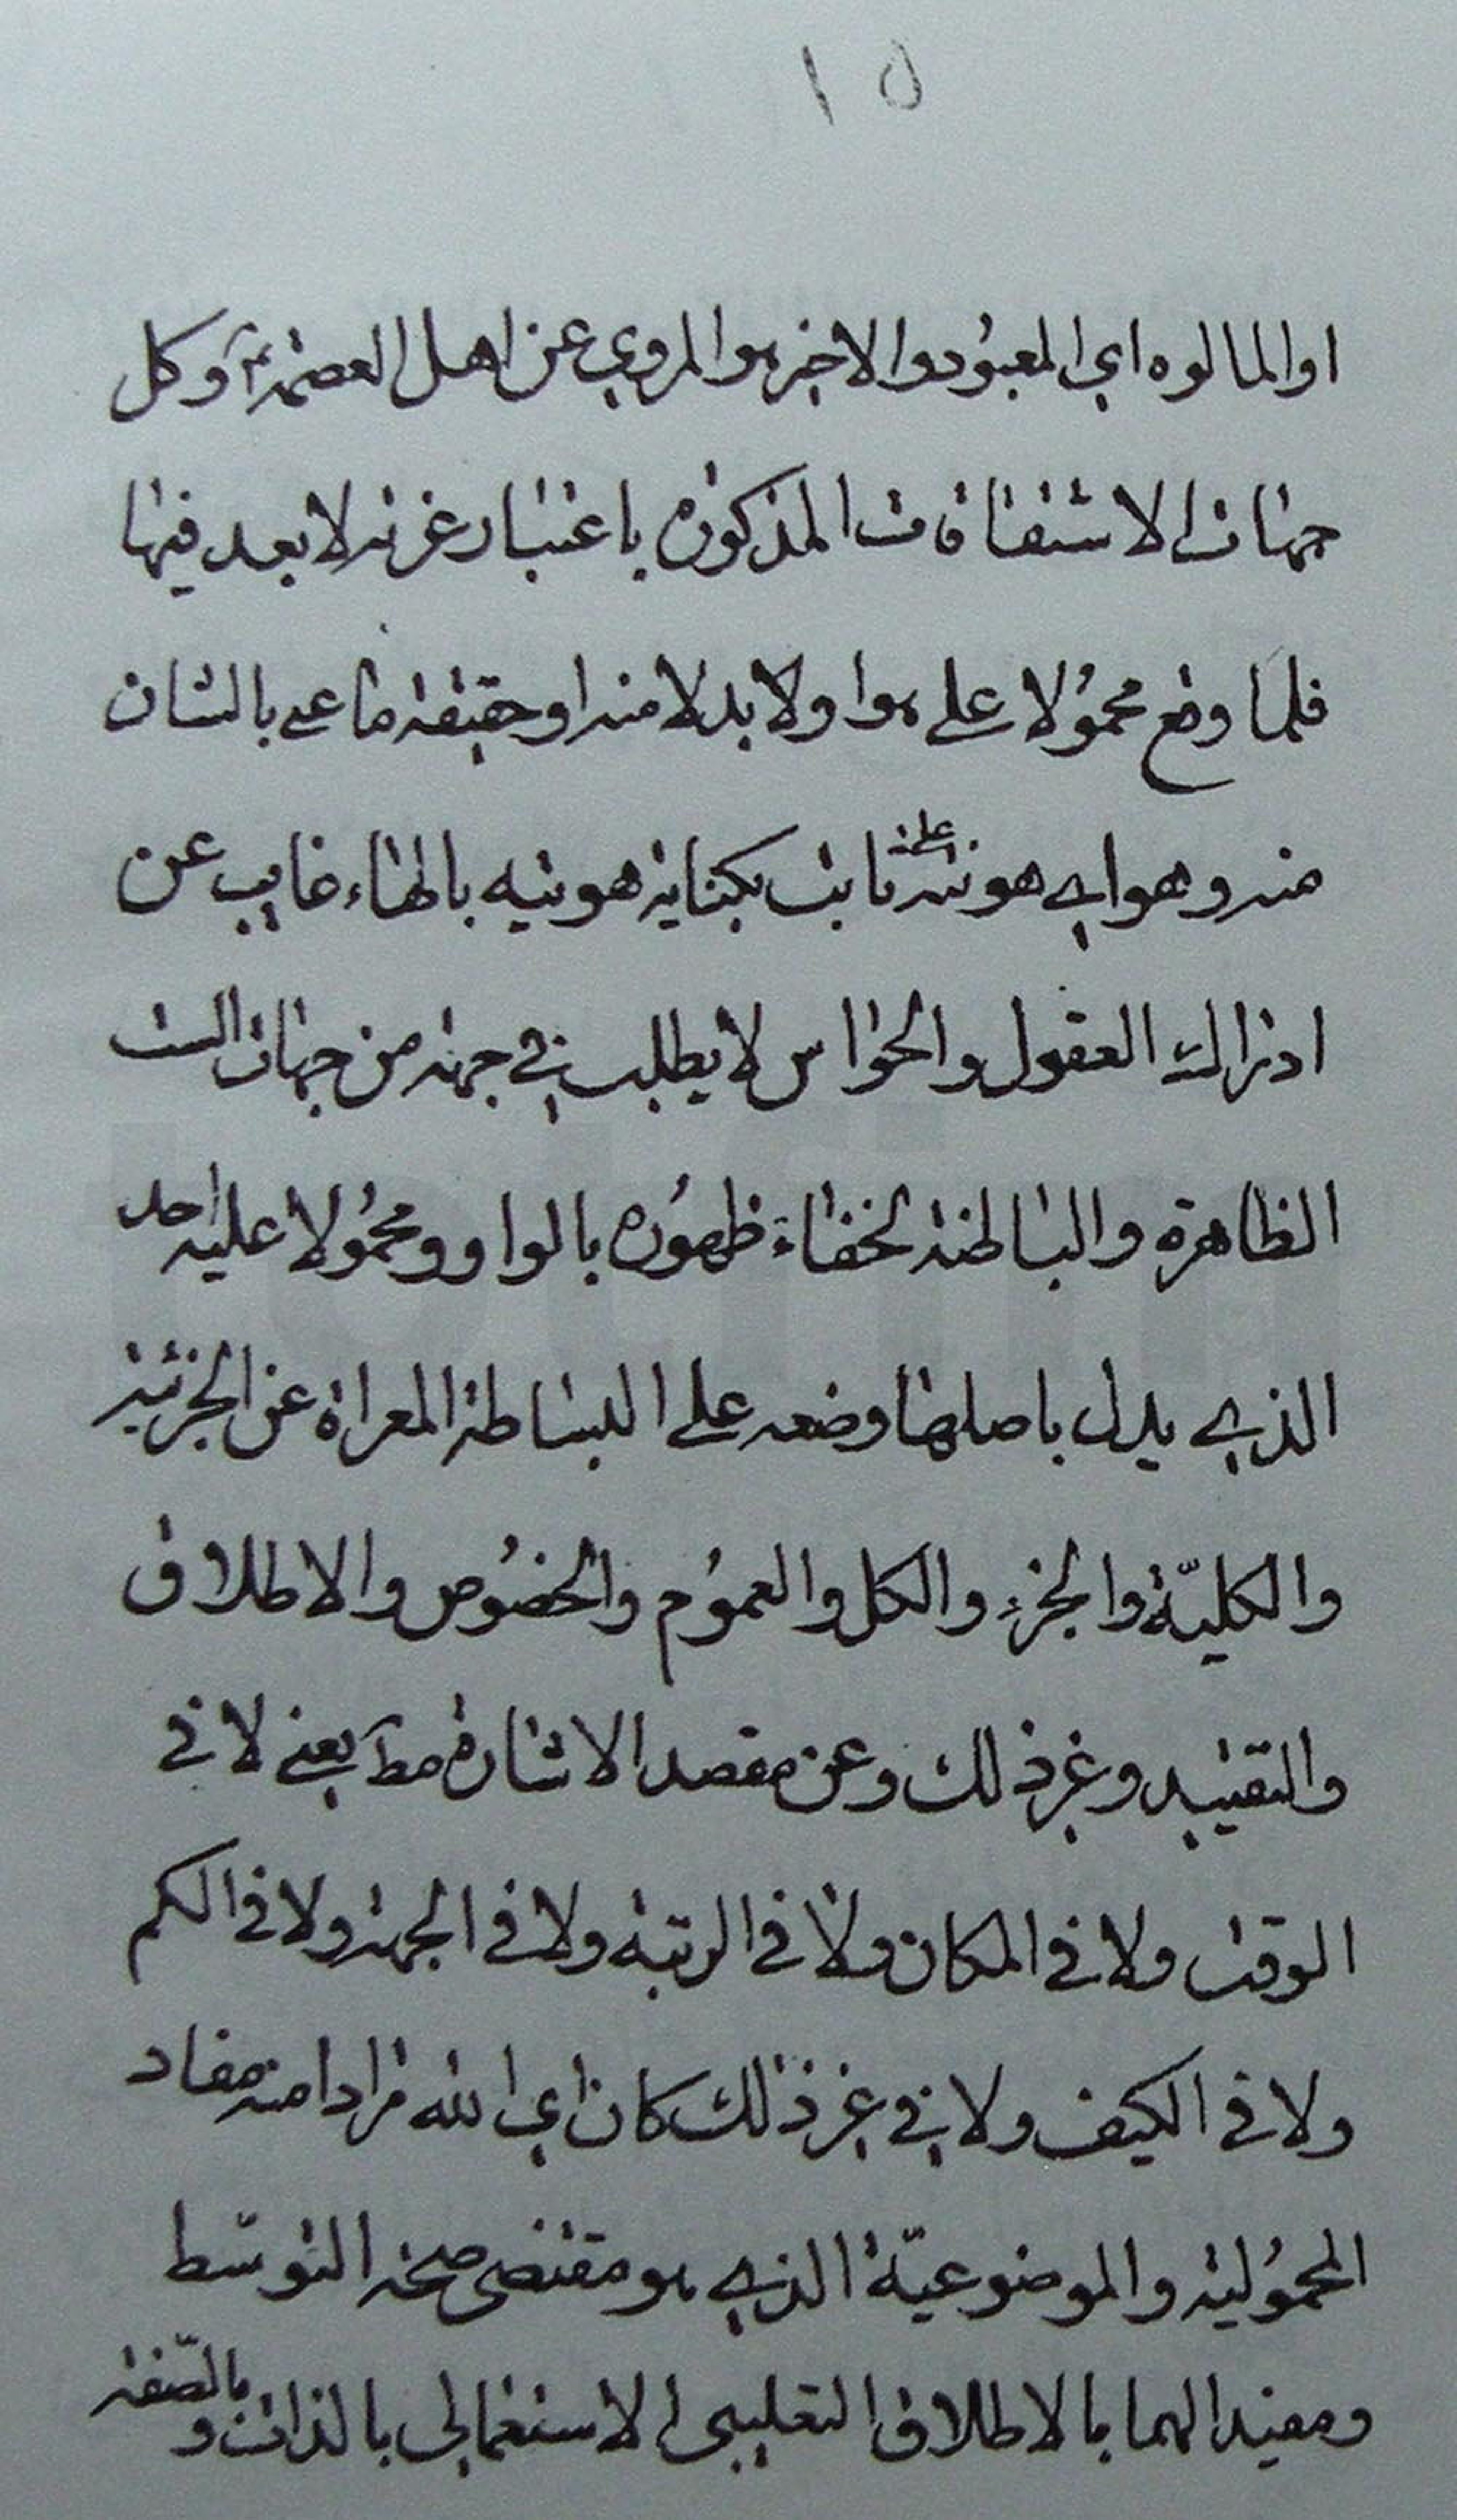 ١٥
او المالوه اي المعبود والاخير هو المروي عن اهل العصمة ع وكل
جهات الاشتقاقات المذكورة باعتبار غرته لا بعد فيها
فلما وقع محمولا على هو اولا بدلا منه او حقيقة ما عبر بالشان
منه وهو اي هويته ثابت بكناية هويته بالهاء غايب عن
ادراك العقول والحواس لا يطلب في جهة من جهات الست
الظاهرة والباطنة لخفاء ظهوره بالواو ومحمولا عليه احد
الذي يدل باصلها وضعه على البساطة المعراة عن الجزئية
والكلية والجزء والكل والعموم والخصوص والاطلاق
والتقييد وغير ذلك وعن مقصد الاشارة مط يعني لا في
الوقت ولا في المكان ولا في الرتبة ولا في الجهة ولا في الكم
ولا في الكيف ولا في غير ذلك كان اي الله مرادا منه مفاد
المحمولية والموضوعية الذي هو مقتضى صحة التوسط
ومفيدا لهما بالاطلاق التغليبي الاستعمالي بالذات و بالصفة